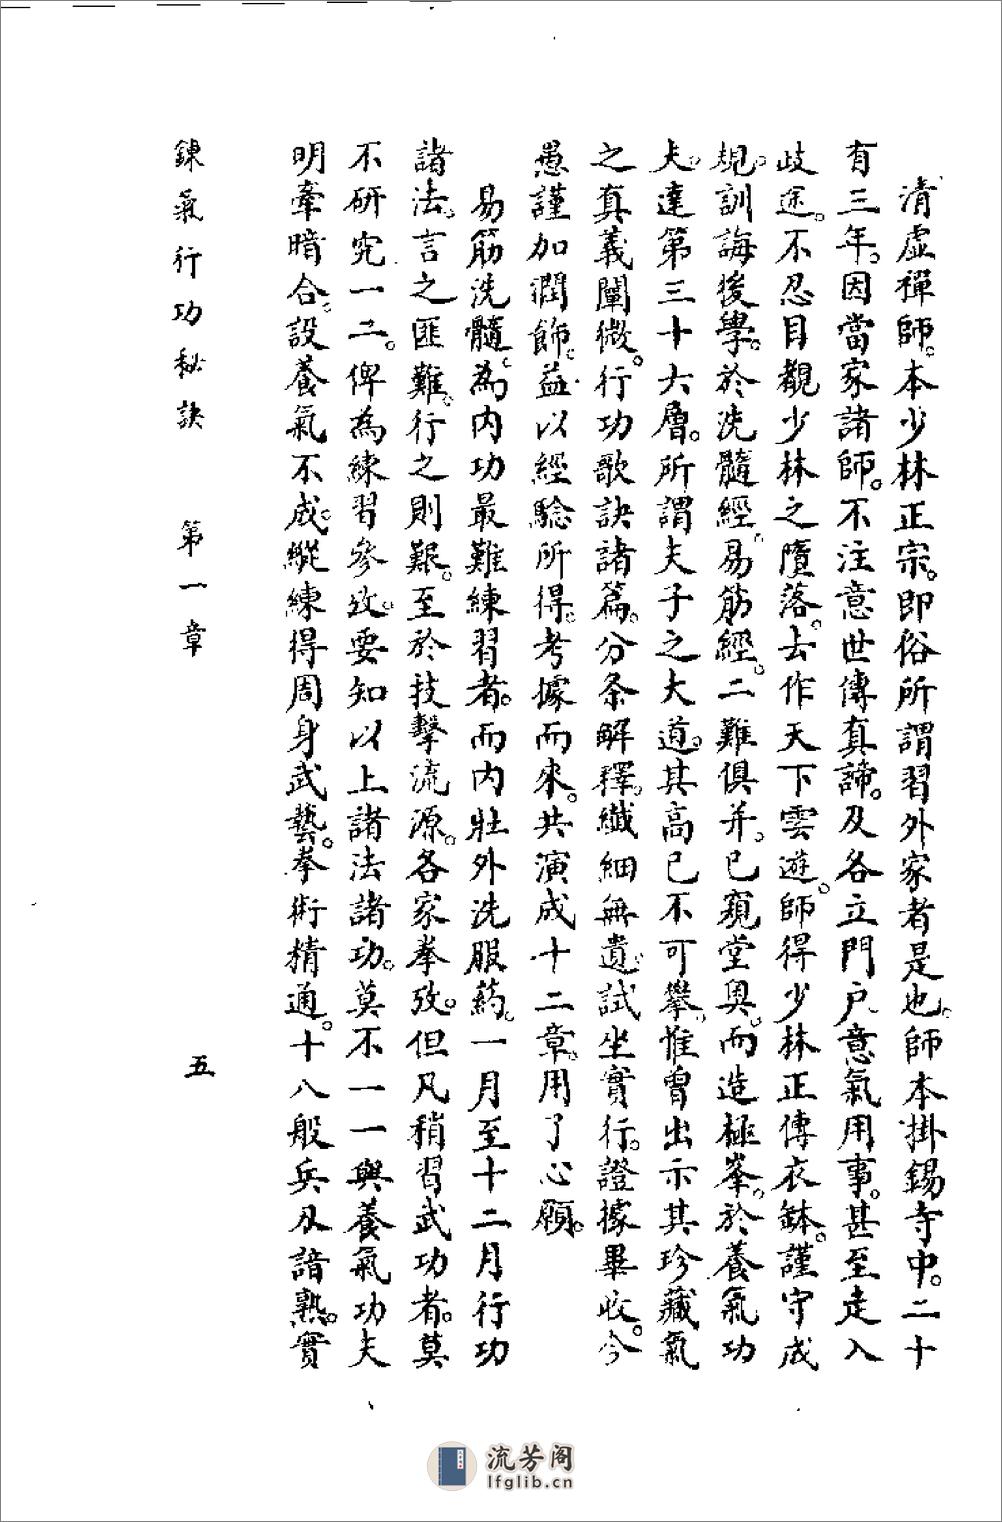 清虛禪師。本少林正宗。即俗所謂習外家者是也。師本掛錫寺中。二十
有三年。因當家諸師。不注意世傳真諦。及各立門戶。意氣用事。甚至走入
歧途。不忍目觀少林之隳落。去作天下雲遊。師得少林正傳衣缽。謹守成
規。訓誨後學。於洗髓經。易筋經。二難俱并。已窺堂奧。而造極峯。於養氣功
夫。達第三十六層。所謂夫子之大道。其高已不可攀。惟曾出示其珍藏氣
之真義闡微。行功歌訣諸篇。分条解釋。纖細無遺。試坐實行。證據畢收。今
愚謹加潤飾。益以經驗所得。考據而來。共演成十二章。用了心願。
易筋洗髓。為内功最難練習者。而内壯外洗服葯。一月至十二月行功
諸法。言之匪難。行之則艱。至於技擊流源。各家拳攷。但凡稍習武功者。莫
不研究一二。俾為練習參攷。要知以上諸法諸功。莫不一一與養氣功夫
明牽暗合。設養氣不成。縱練得周身武藝。拳術精通。十八般兵刃諳熟。實
鍊氣行功秘訣 第一章 五
流芳阁
lfglib.cn